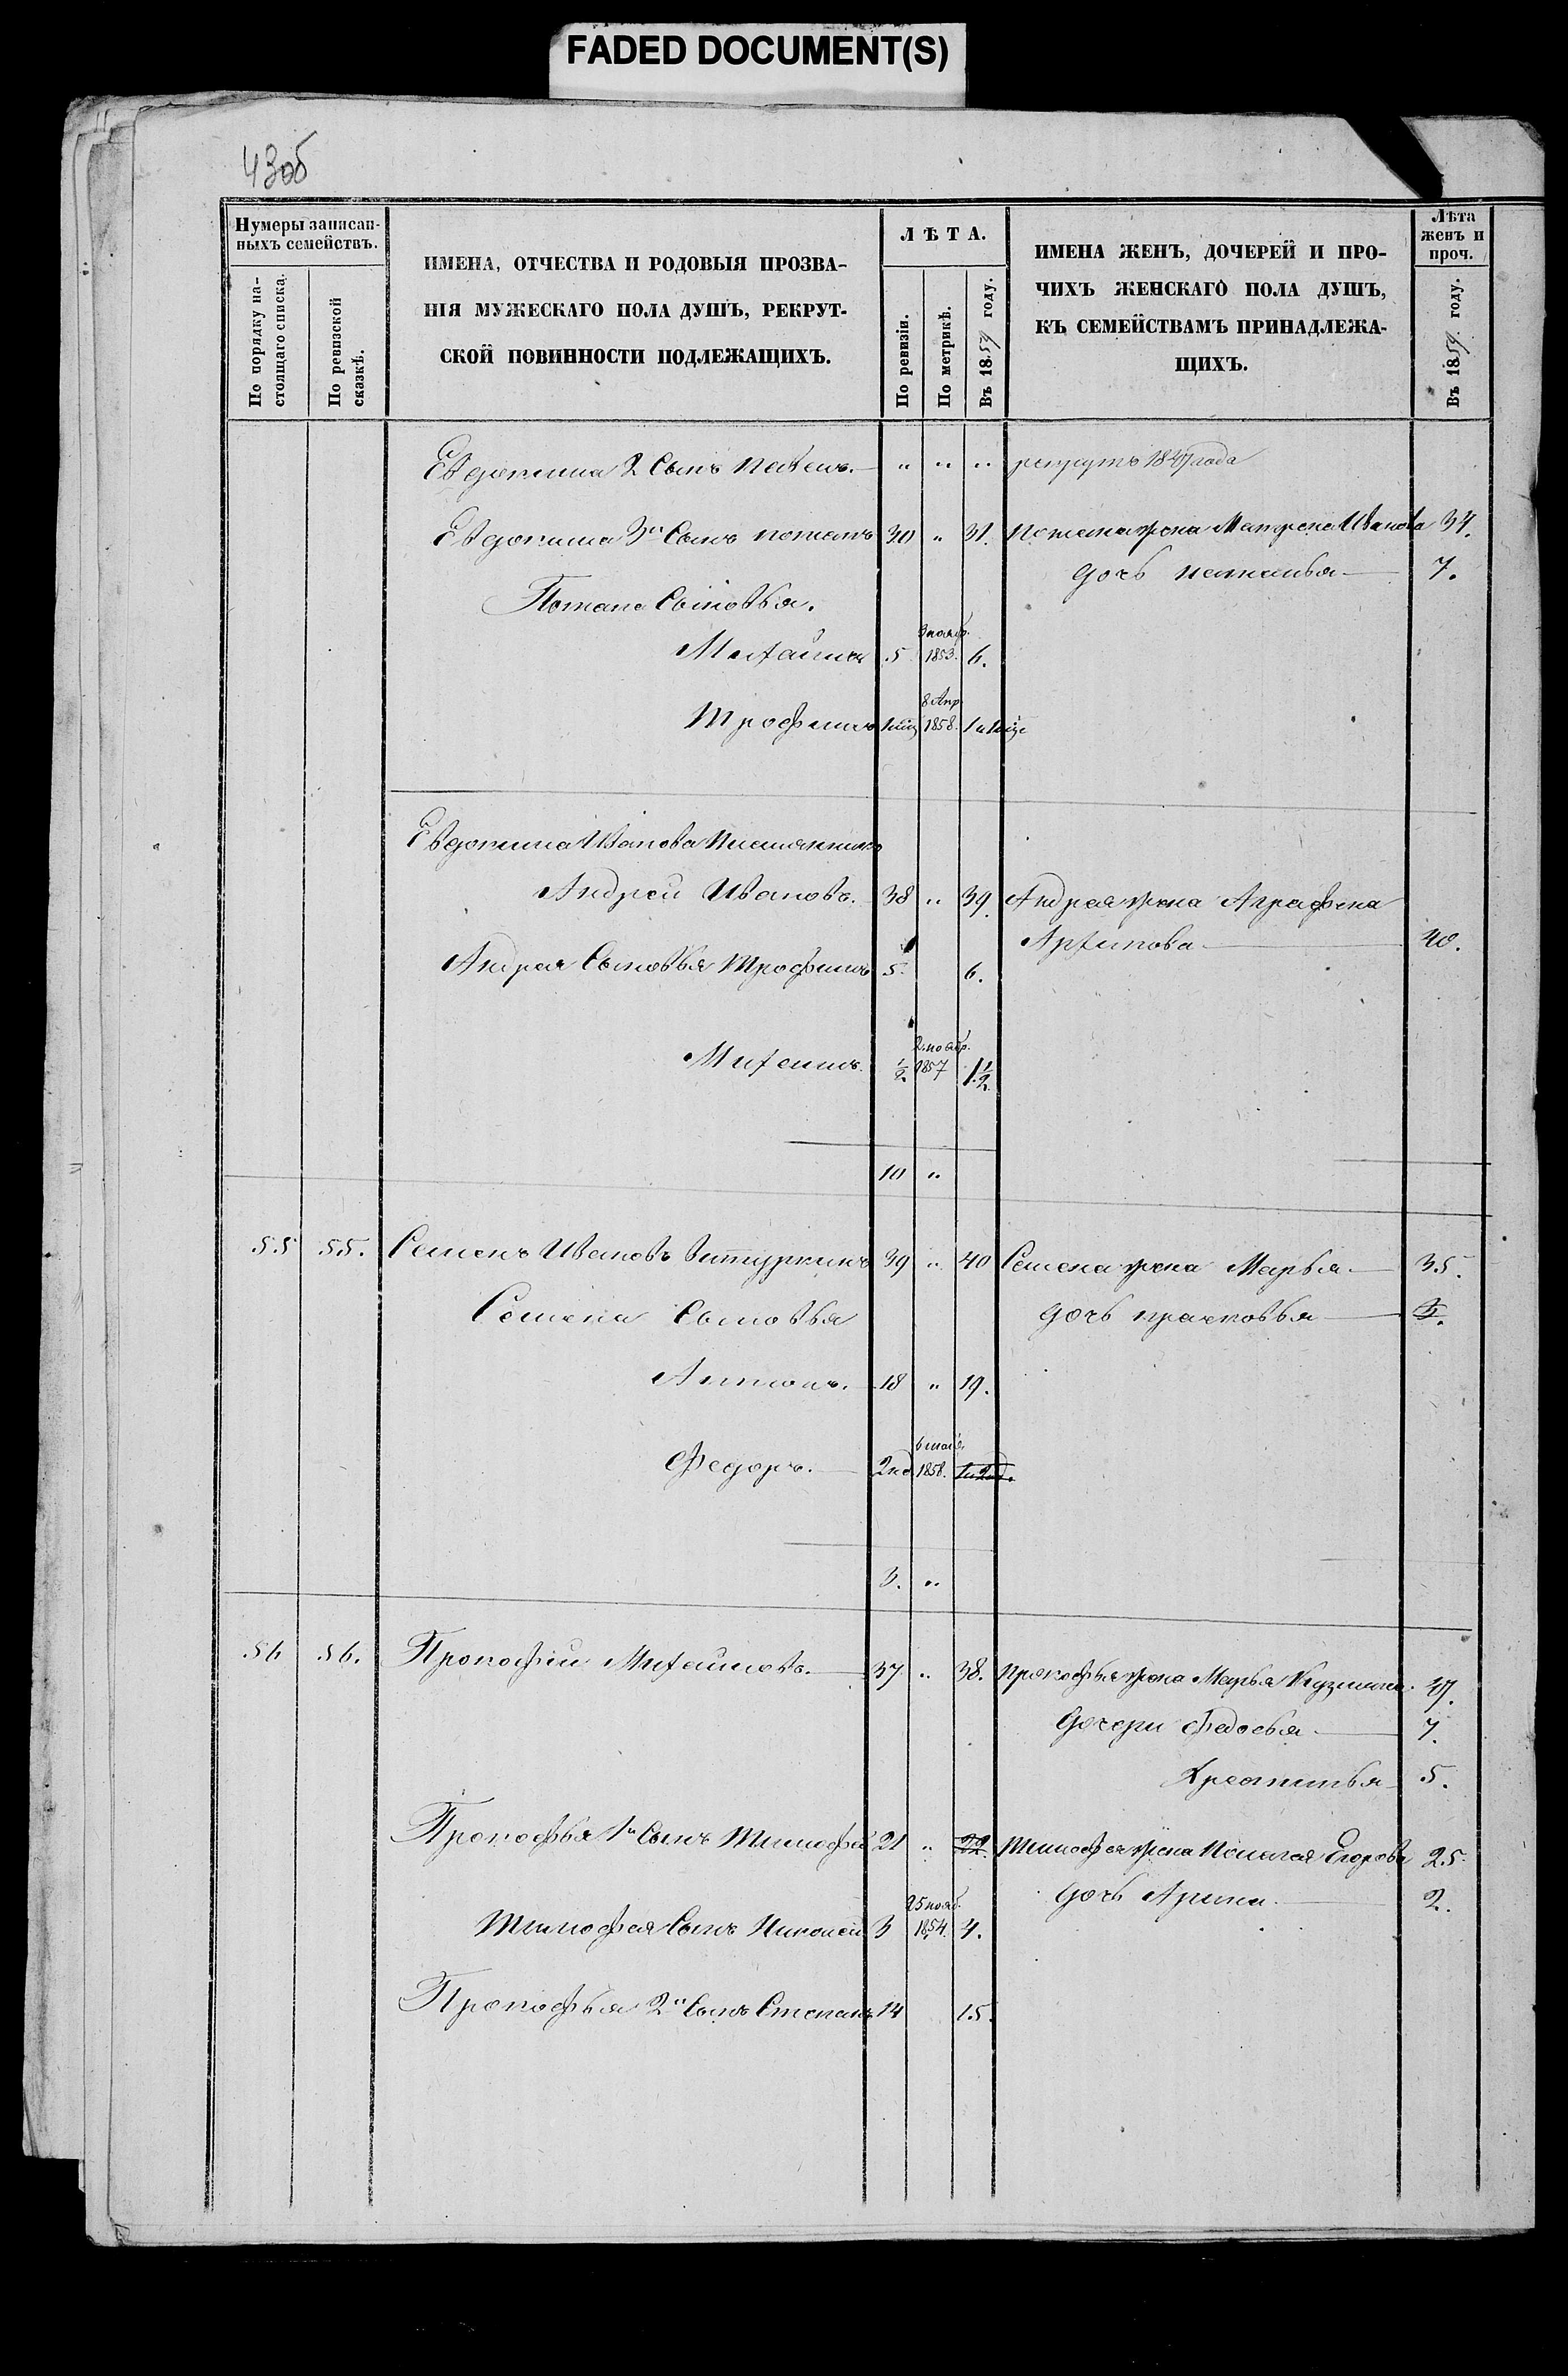 FADED DOCUMENT(S)
43об
Нумеры записан-
ныхъ семействъ.
По порядку на-
стоящаго списка.
По ревизской
сказкѣ.
ИМЕНА, ОТЧЕСТВА И РОДОВЫЯ ПРОЗВА-
НІЯ МУЖЕСКАГО ПОЛА ДУШЪ, РЕКРУТ-
СКОЙ ПОВИННОСТИ ПОДЛЕЖАЩИХЪ.
ЛѢТА.
По ревизіи.
По метрикѣ.
Въ 1859 году.
ИМЕНА ЖЕНЪ, ДОЧЕРЕЙ И ПРО-
ЧИХЪ ЖЕНСКАГО ПОЛА ДУШЪ,
КЪ СЕМЕЙСТВАМЪ ПРИНАДЛЕЖА-
ЩИХЪ.
Лѣта
женъ и
проч.
Въ 1859 году.
Евдокима 2 Сынъ Павелъ. " " " рекрутъ 1847 года
Евдокима 3й Сынъ потапъ 30 " 31. Потапа жена Матрена Иванова 34.
дочь наталья 7.
Потапа Сыновья.
3 нояб.
Михайла 5 1853. 6.
8 Апр.
Трофимъ 1858.
Евдокима Иванова племянникъ
Андрей Ивановъ. 38 " 39. Андрея жена Аграфена
Архипова 40.
Андрея Сыновья Трофимъ 5. 6.
2 ноябр.
Михаилъ. 1/2 1857 1 1/2
10 "
55 55. Семенъ Ивановъ 39 " 40 Семена жена Марья 35.
Семена Сыновья дочь прасковья
Антонъ. 18 " 19.
6 мая
Федоръ. 2нд 1858.
3. "
56 56. Прокофiй Михайловъ. 37 " 38. прокофья жена Марья Кузмина. 47.
дочери Федосья 7.
Хрестинья 5.
Прокофья 1й Сынъ Тимофей 21 " 22. Тимофея жена Пелагея Егорова 25.
дочь Арина 2.
25 нояб.
Тимофея Сынъ Николай 3 1854. 4.
Прокофья 2й Сынъ Степанъ 14 15.